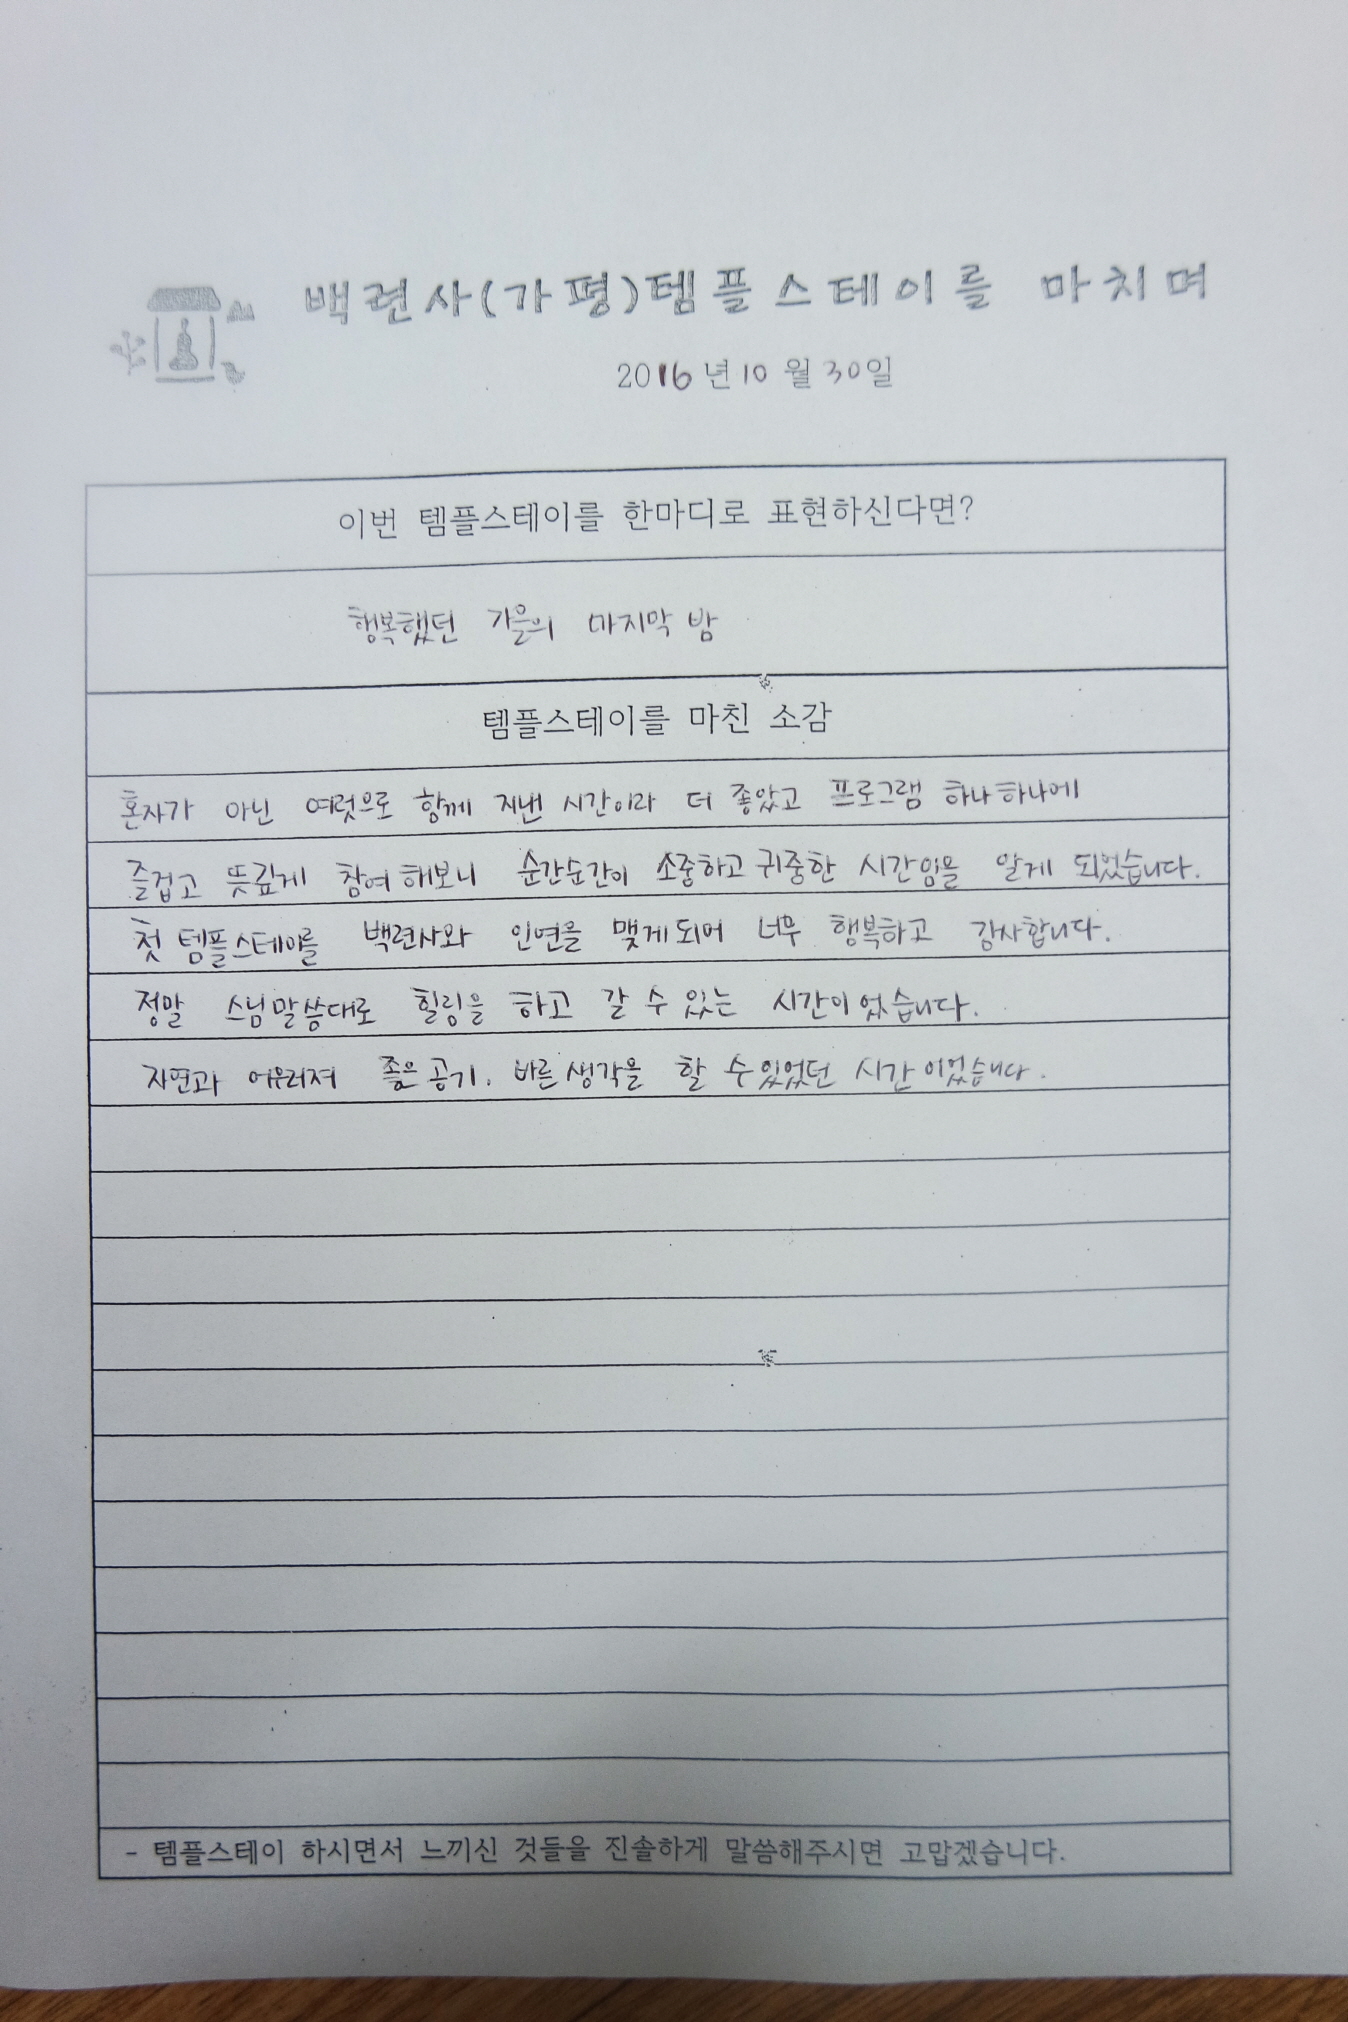 백련사(가평)템플스테이를 마치며
2016년 10월 30일
이번 템플스테이를 한마디로 표현하신다면?
행복했던 가을의 마지막 밤
템플스테이를 마친 소감
혼자가 아닌 여럿으로 함께 지낸 시간이라 더 좋았고 프로그램 하나하나에
즐겁고 뜻깊게 참여해보니 순간순간이 소중하고 귀중한 시간임을 알게 되었습니다.
첫 템플스테이를 백련사와 인연을 맺게되어 너무 행복하고 감사합니다.
정말 스님말씀대로 힐링을 하고 갈 수 있는 시간이었습니다.
자연과 어우러져 좋은공기. 바른생각을 할 수있었던 시간이었습니다.
- 템플스테이 하시면서 느끼신 것들을 진솔하게 말씀해주시면 고맙겠습니다.